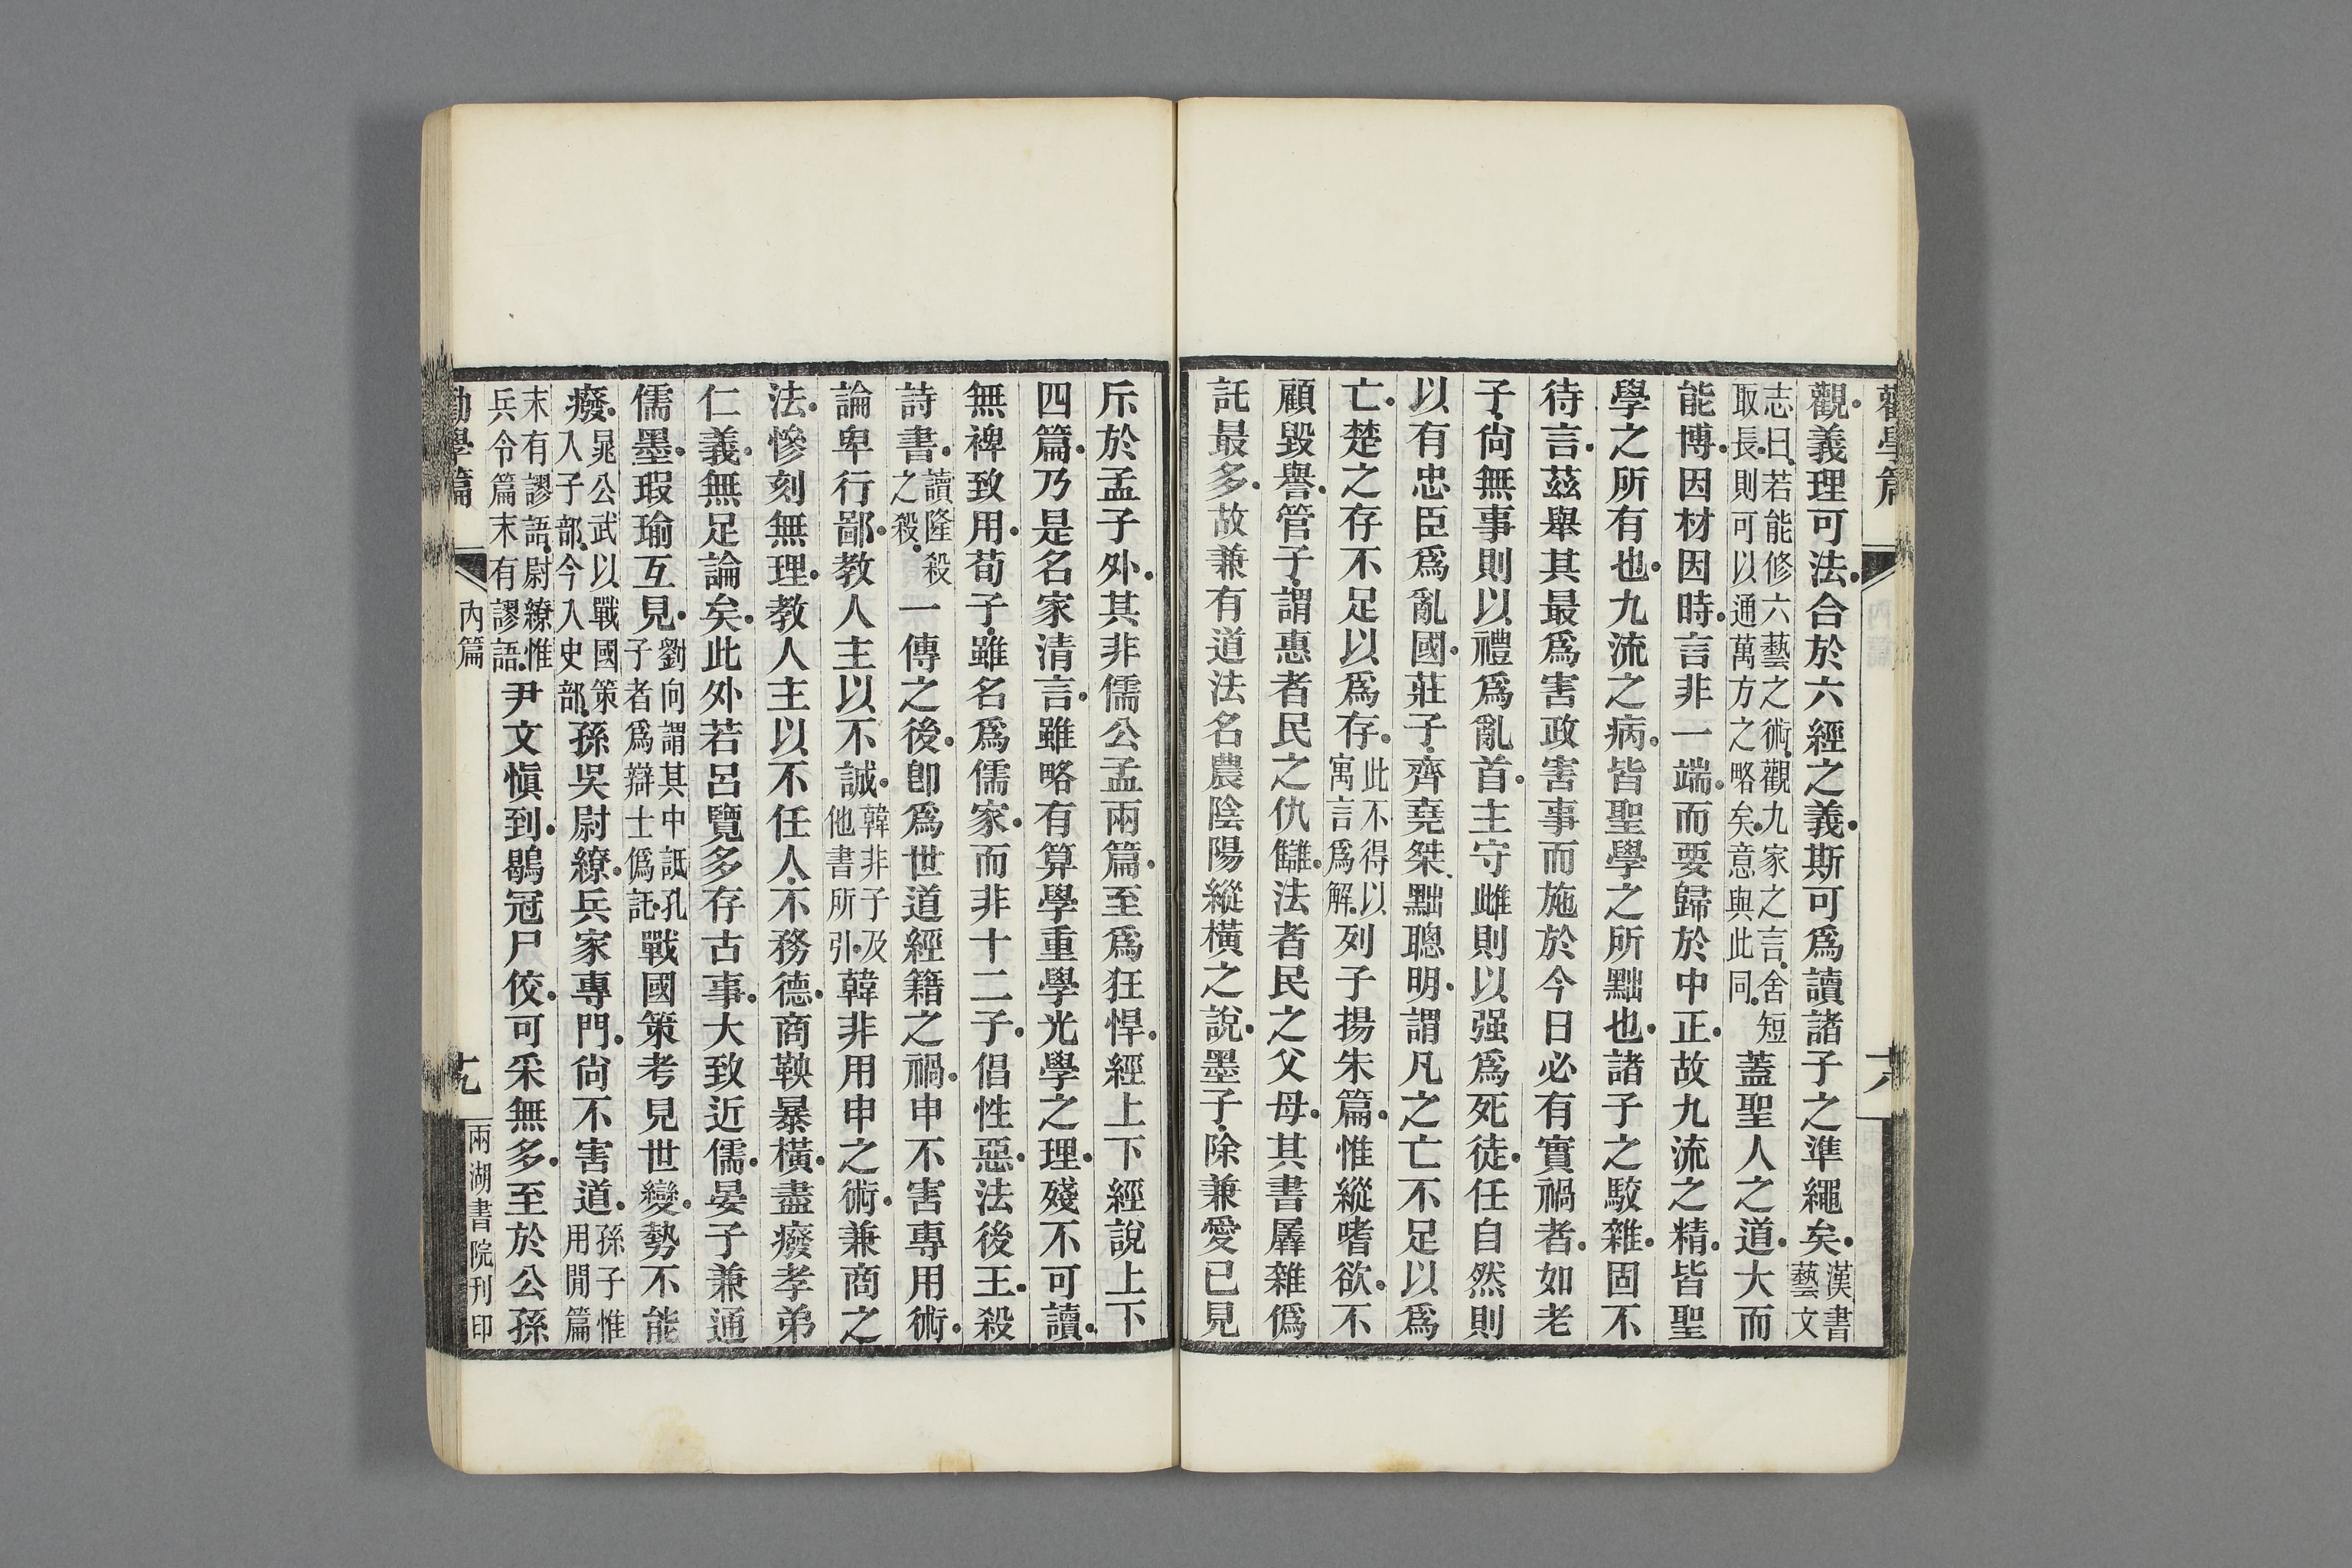 勸學篇 內篇 十八
觀義理可法合於六經之義斯可爲讀諸子之準繩矣漢書藝文
志曰若能修六藝之術觀九家之言舍短取長則可以通萬方之略矣意與此同蓋聖人之道大而
能博因材因時言非一端而要歸於中正故九流之精皆聖
學之所有也九流之病皆聖學之所黜也諸子之駁雜固不
待言茲舉其最爲害政害事而施於今日必有實禍者如老
子尙無事則以禮爲亂首主守雌則以强爲死徒任自然則
以有忠臣爲亂國莊子齊堯桀黜聰明謂凡之亡不足以爲
亡楚之存不足以爲存此不得以寓言爲解列子揚朱篇惟縱嗜欲不
顧毀譽管子謂惠者民之仇讎法者民之父母其書羼雜僞
託最多故兼有道法名農陰陽縱橫之說墨子除兼愛已見
斥於孟子外其非儒公孟兩篇至爲狂悍經上下經說上下
四篇乃是名家清言雖略有算學重學光學之理殘不可讀
無裨致用荀子雖名爲儒家而非十二子倡性惡法後王殺
詩書讀隆殺之殺一傳之後卽爲世道經籍之禍申不害專用術
論卑行鄙教人主以不誠韓非子及他書所引韓非用申之術兼商之
法慘刻無理教人主以不任人不務德商鞅暴橫盡廢孝弟
仁義無足論矣此外若呂覽多存古事大致近儒晏子兼通
儒墨瑕瑜互見劉向謂其中詆孔子者爲辯士僞託戰國策考見世變勢不能
廢晁公武以戰國策入子部今入史部孫吳尉繚兵家專門尙不害道孫子惟用閒篇
末有謬語尉繚惟兵令篇末有謬語尹文愼到鶡冠尸佼可采無多至於公孫
勸學篇 內篇 十九 兩湖書院刊印